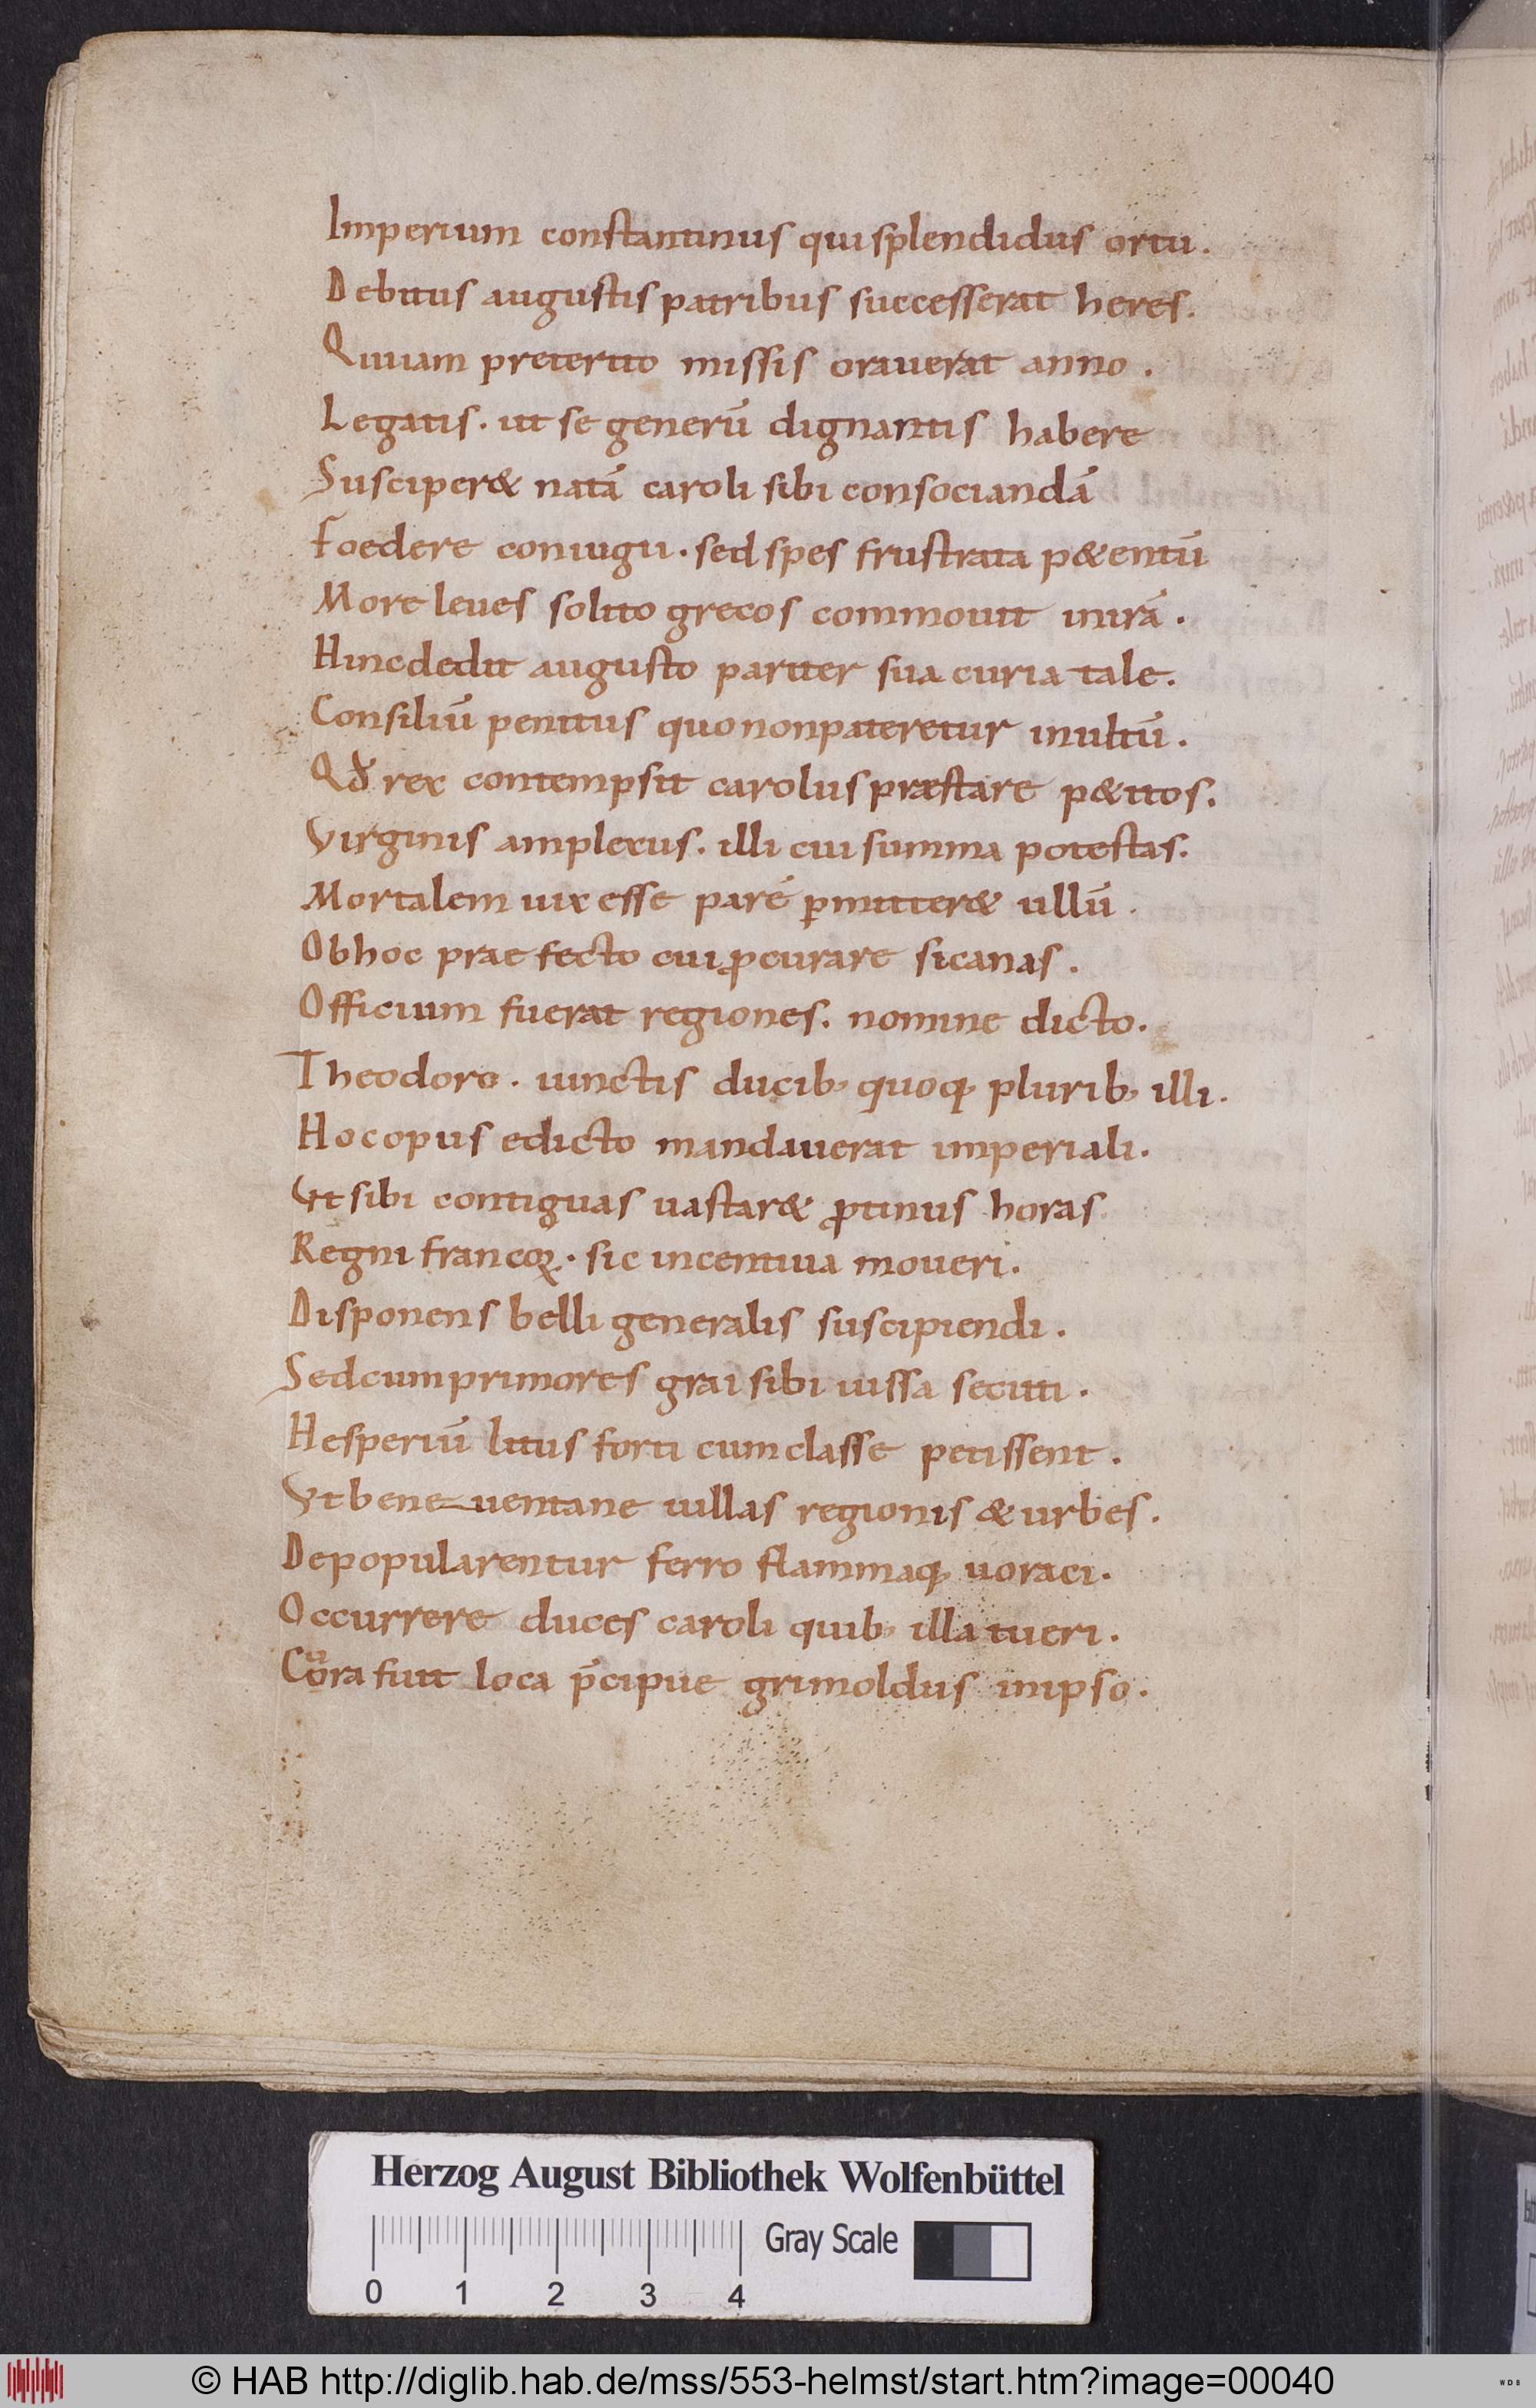 Imperium constantinus qui splendidus ortu.
Debitus augustis patribus successerat heres.
Qui iam preterito missis orauerat anno.
Legatis. ut se generū dignantis habere
Susciper& natā caroli sibi consociandā
Foedere coniugii. sed spes frustrata p&entū
More leues solito grecos commouit in irā.
Hinc dedit augusto pariter sua curia tale.
Consiliū penitus quo non pateretur inultū.
Qđ rex contempsit carolus præstare p&itos.
Virginis amplexus. illi cui summa potestas.
Mortalem uix esse parē ꝑmitter& ullū.
Ob hoc praefecto cui ꝓcurare sicanas.
Officium fuerat regiones. nomine dicto.
Theodoro. iunctis ducib; quoq; plurib; illi.
Hoc opus edicto mandauerat imperiali.
Vt sibi contiguas uastar& ꝓtinus horas
Regni francoꝝ. sic incentiua moueri.
Disponens belli generalis suscipiendi.
Sed cum primores grai sibi iussa secuti.
Hesperiū litus forti cum classe petissent.
Vt beneuentane uillas regionis & urbes.
Depopularentur ferro flammaq; uoraci.
Occurrere duces caroli quib; illa tueri.
Cura fuit loca p̄cipue grimoldus in ipso.
Herzog August Bibliothek Wolfenbüttel
Gray Scale
0 1 2 3 4
© HAB http://diglib.hab.de/mss/553-helmst/start.htm?image=00040
WDB